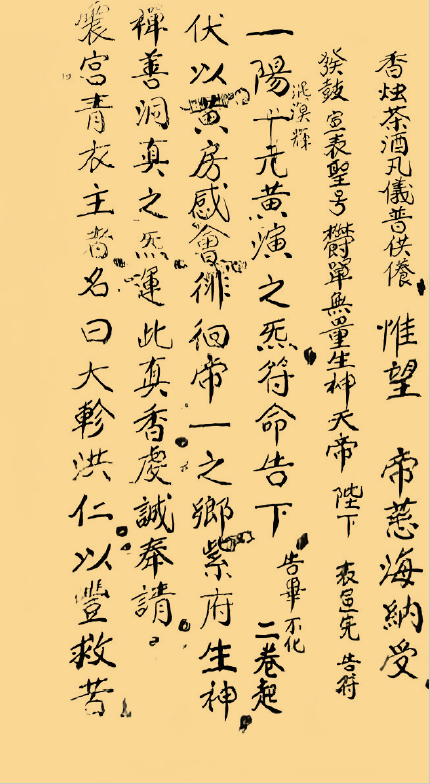 香烛茶酒凡儀普供養 惟望 帝慈海納受
發鼓 宣表聖号 欝單無量生神天帝 陛下 表宣完 告符
一陽十元黄演之炁符命告下 告畢不化 二卷起
混溟輝
伏以黄房感會徘徊帝一之鄉紫府生神
禪善洞真之炁運此真香虔誠奉請
震宫青衣主者名曰大軫洪仁以豐救苦